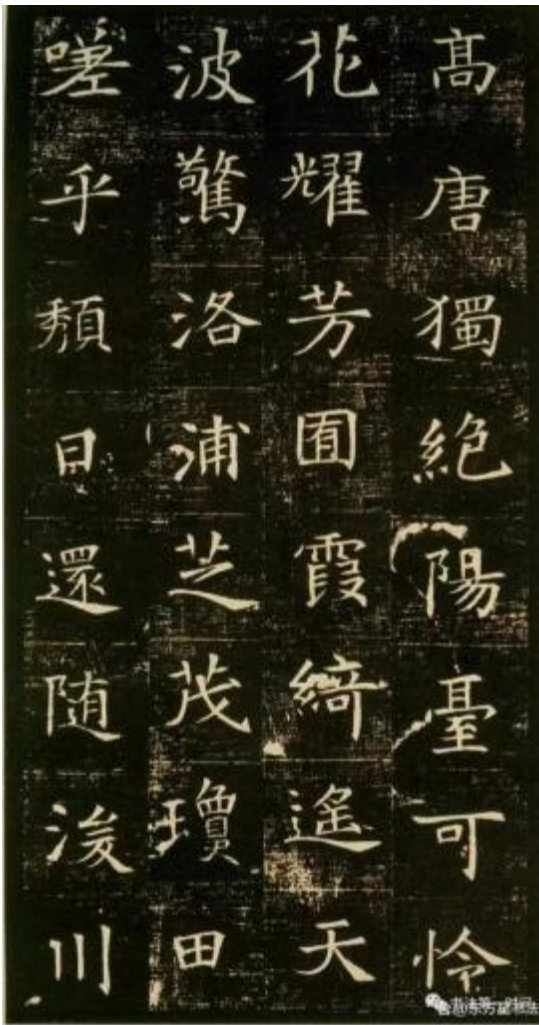 髙唐獨絶陽臺可怜
花耀芳囿霞綺遥天
波驚洛浦芝茂瓊田
嗟乎頽日還随浚川